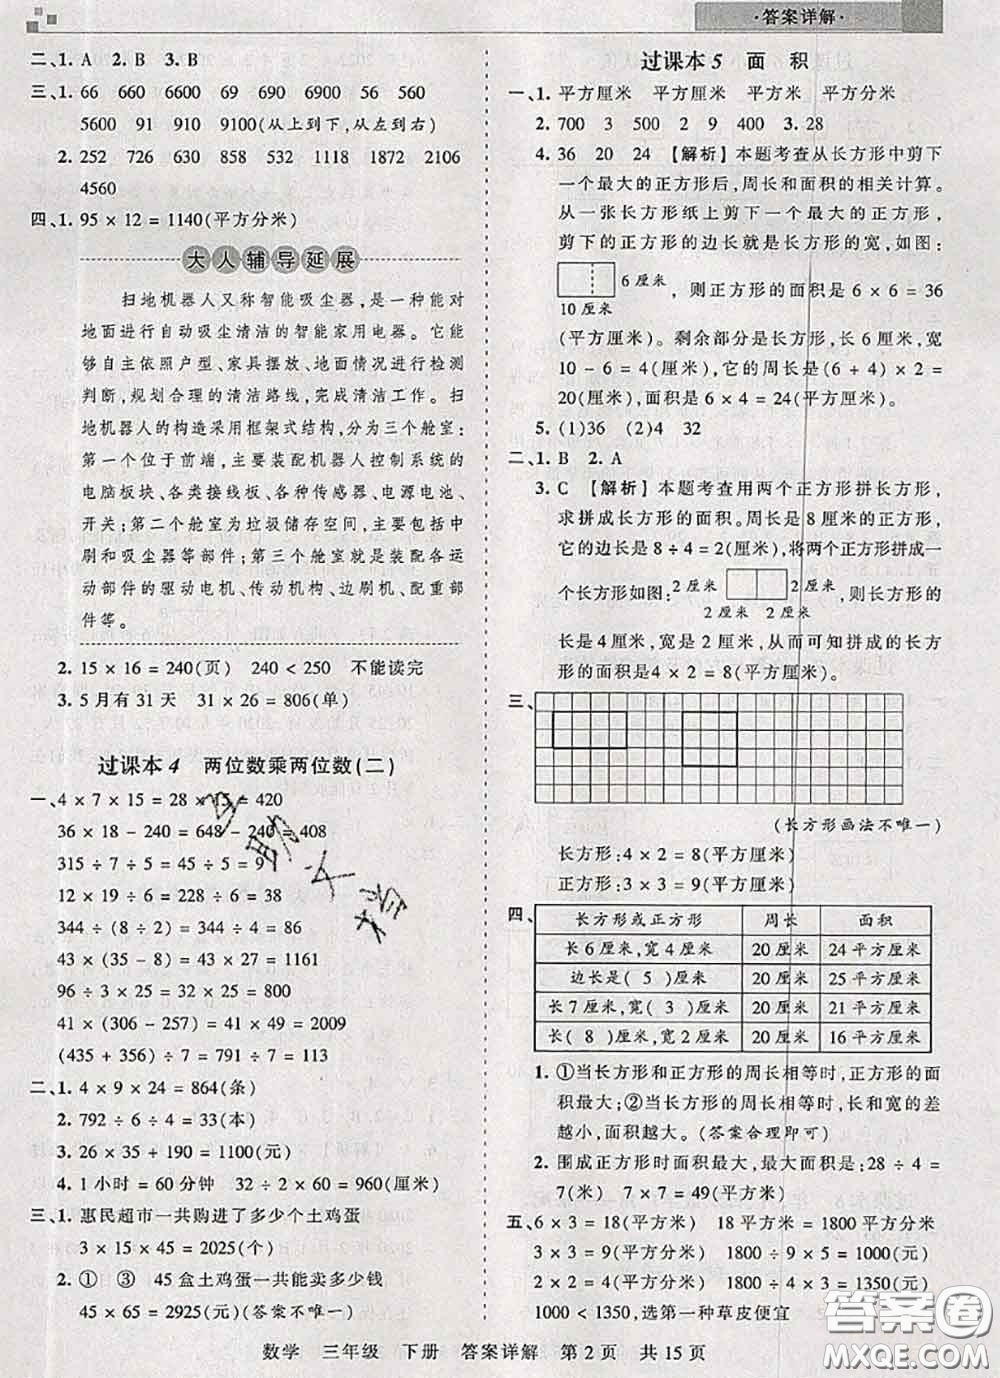 ·答案详解·
二、1. A  2. B  3. B
三、1. 66  660  6600  69  690  6900  56  560
5600  91  910  9100(从上到下,从左到右)
2. 252  726  630  858  538  1118  1872  2106
4560
四、1. 95 × 12 = 1140(平方分米)
大人辅导延展
扫地机器人又称智能吸尘器,是一种能对
地面进行自动吸尘清洁的智能家用电器。它能
够自主依照户型、家具摆放、地面情况进行检测
判断,规划合理的清洁路线,完成清洁工作。扫
地机器人的构造采用框架式结构,分为三个舱室:
第一个位于前端,主要装配机器人控制系统的
电脑板块、各类接线板、各种传感器、电源电池、
开关;第二个舱室为垃圾储存空间,主要包括中
刷和吸尘器等部件;第三个舱室就是装配各运
动部件的驱动电机、传动机构、边刷机、配重部
件等。
2. 15 × 16 = 240(页)  240 < 250  不能读完
3. 5 月有 31 天  31 × 26 = 806(单)
过课本 4  两位数乘两位数(二)
一、4 × 7 × 15 = 28 × 15 = 420
36 × 18 - 240 = 648 - 240 = 408
315 ÷ 7 ÷ 5 = 45 ÷ 5 = 9
12 × 19 ÷ 6 = 228 ÷ 6 = 38
344 ÷ (8 ÷ 2) = 344 ÷ 4 = 86
43 × (35 - 8) = 43 × 27 = 1161
96 ÷ 3 × 25 = 32 × 25 = 800
41 × (306 - 257) = 41 × 49 = 2009
(435 + 356) ÷ 7 = 791 ÷ 7 = 113
二、1. 4 × 9 × 24 = 864(条)
2. 792 ÷ 6 ÷ 4 = 33(本)
3. 26 × 35 + 190 = 1100(元)
4. 1 小时 = 60 分钟  32 × 60 ÷ 2 = 960(厘米)
三、1. 惠民超市一共购进了多少个土鸡蛋
3 × 15 × 45 = 2025(个)
2. ①  ③  45 盒土鸡蛋一共能卖多少钱
45 × 65 = 2925(元)(答案不唯一)
过课本 5  面  积
一、1. 平方厘米  平方厘米  平方米  平方分米
2. 700  3  500  2  9  400  3. 28
4. 36  20  24  【解析】本题考查从长方形中剪下
一个最大的正方形后,周长和面积的相关计算。
从一张长方形纸上剪下一个最大的正方形,
剪下的正方形的边长就是长方形的宽,如图:
6 厘米,则正方形的面积是 6 × 6 = 36
10 厘米
(平方厘米)。剩余部分是长方形,长 6 厘米,宽
10 - 6 = 4(厘米),它的周长是(6 + 4) × 2 =
20(厘米),面积是 6 × 4 = 24(平方厘米)。
5. (1)36  (2)4  32
二、1. B  2. A
3. C  【解析】本题考查用两个正方形拼长方形,
求拼成长方形的面积。周长是 8 厘米的正方形,
它的边长是 8 ÷ 4 = 2(厘米),将两个正方形拼成一
个长方形如图:2 厘米  2 厘米,则长方形的
2 厘米 2 厘米
长是 4 厘米,宽是 2 厘米,从而可知拼成的长方
形的面积是4 × 2 = 8(平方厘米)。
三、
(长方形画法不唯一)
长方形:4 × 2 = 8(平方厘米)
正方形:3 × 3 = 9(平方厘米)
四、
长方形或正方形  周长  面积
长 6 厘米,宽 4 厘米  20 厘米  24 平方厘米
边长是( 5 )厘米  20 厘米  25 平方厘米
长 7 厘米,宽( 3 )厘米  20 厘米  21 平方厘米
长( 8 )厘米,宽 2 厘米  20 厘米  16 平方厘米
1. ①当长方形和正方形的周长相等时,正方形的面
积最大;②当长方形的周长相等时,长和宽的差
越小,面积越大。(答案合理即可)
2. 围成正方形时面积最大,最大面积是:28 ÷ 4 =
7(米)  7 × 7 = 49(平方米)
五、6 × 3 = 18(平方米)  18 平方米 = 1800 平方分米
3 × 3 = 9(平方分米)  1800 ÷ 9 × 5 = 1000(元)
2 × 2 = 4(平方分米)  1800 ÷ 4 × 3 = 1350(元)
1000 < 1350,选第一种草皮便宜
数学  三年级  下册  答案详解  第 2 页  共 15 页
答案圈
MXQE.COM